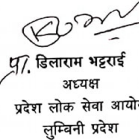 प्रा. डिलाराम भट्टराई
अध्यक्ष
प्रदेश लोक सेवा आयोग
लुम्बिनी प्रदेश